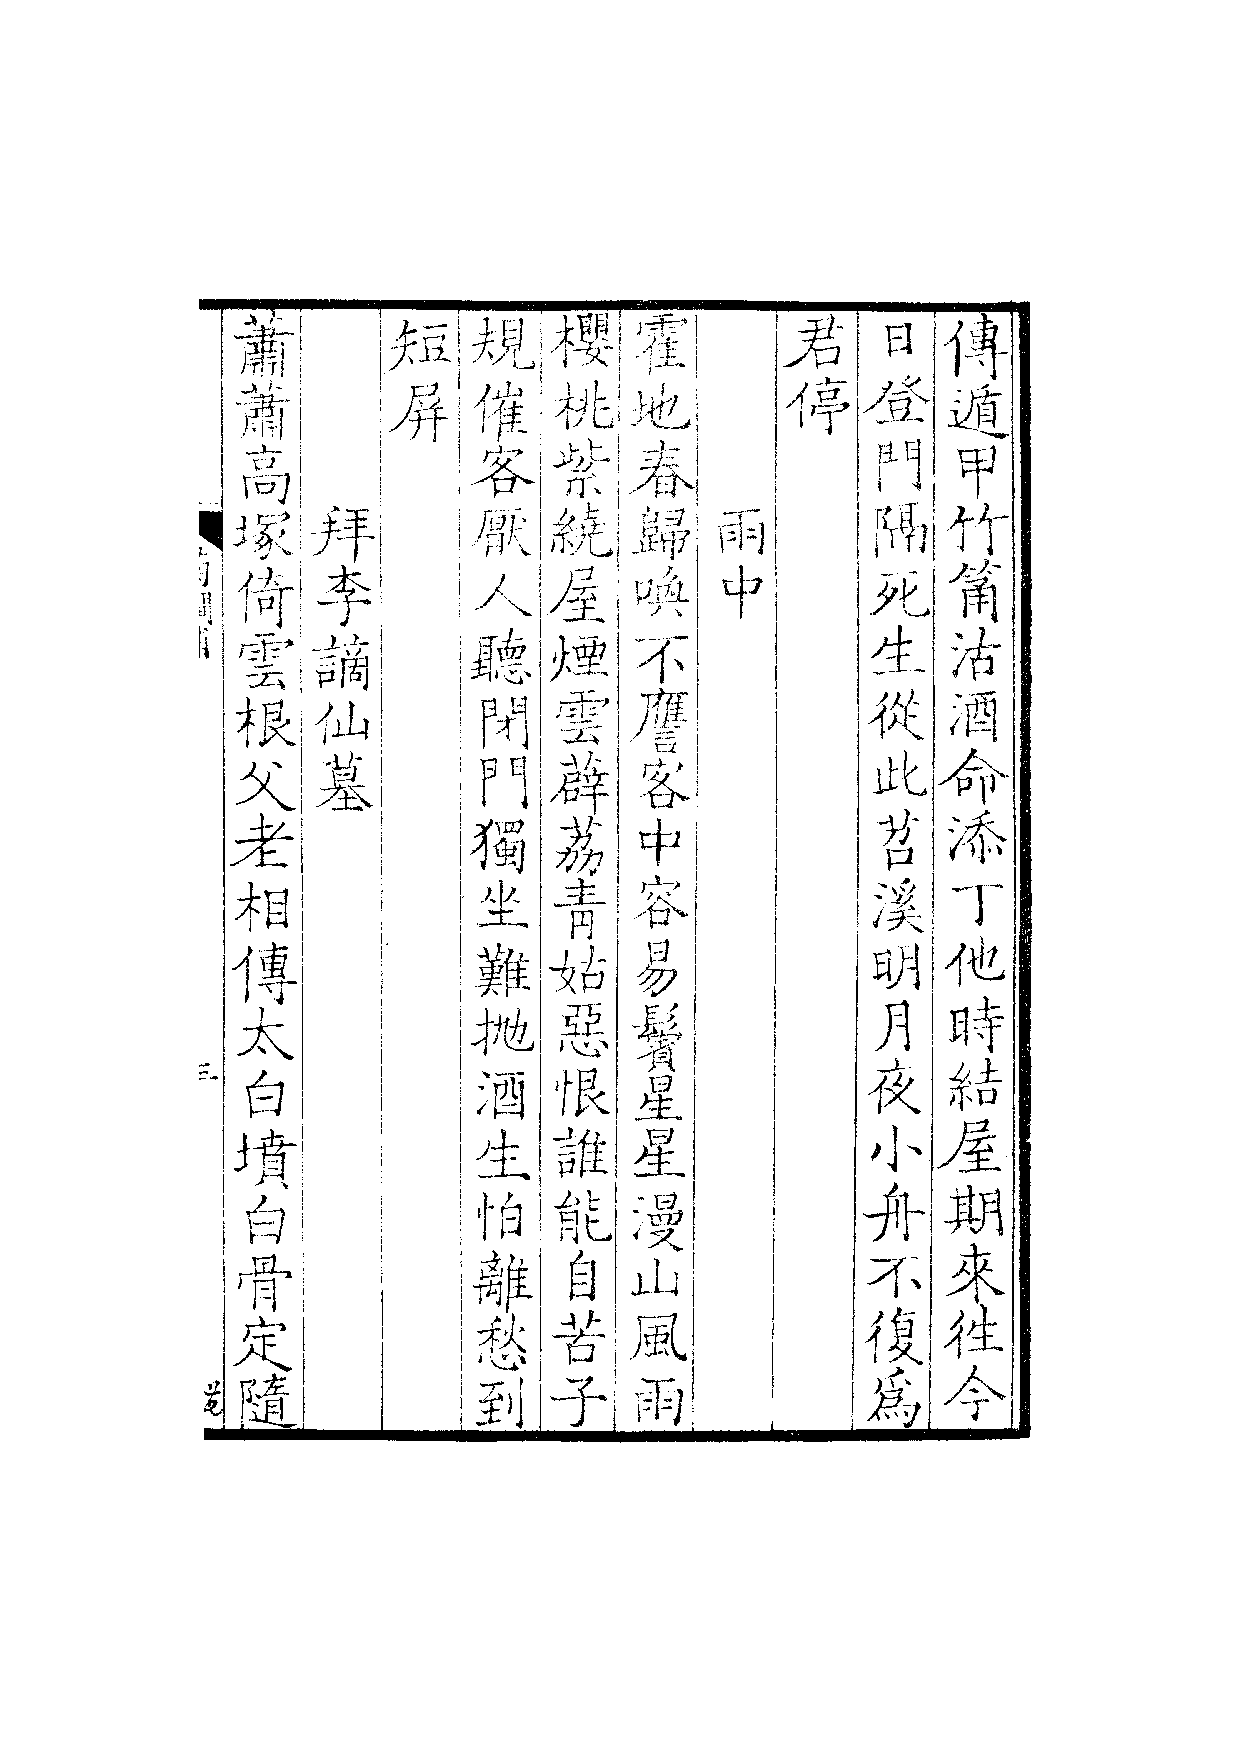 傳遁甲竹筩沽酒命添丁他時結屋期來徃今
日登門隔死生從此苕溪明月夜小舟不復爲
君停
雨中
霍地春歸喚不譍客中容易鬢星星漫山風雨
櫻桃紫繞屋煙雲薜荔青姑惡恨誰能自苦子
規催客厭人聽閉門獨坐難抛酒生怕離愁到
短屏
拜李謫仙墓
蕭蕭高塚倚雲根父老相傳太白墳白骨定隨
三